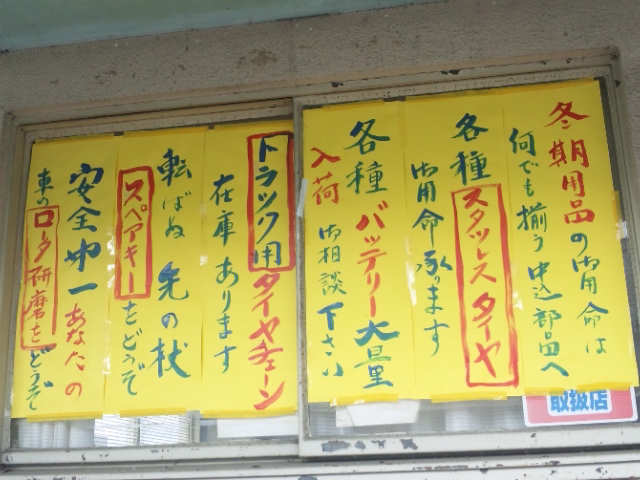 冬期用品の御用命は
何でも揃う中込部品へ
各種スタッレスタイヤ
御用命承ります
各種バッテリー大量
入荷御相談下さい
トラック用タイヤチェーン
在庫あります
転ばぬ先の杖
スペアキーをどうぞ
安全第一あなたの
車のロータ研磨をどうぞ
取扱店